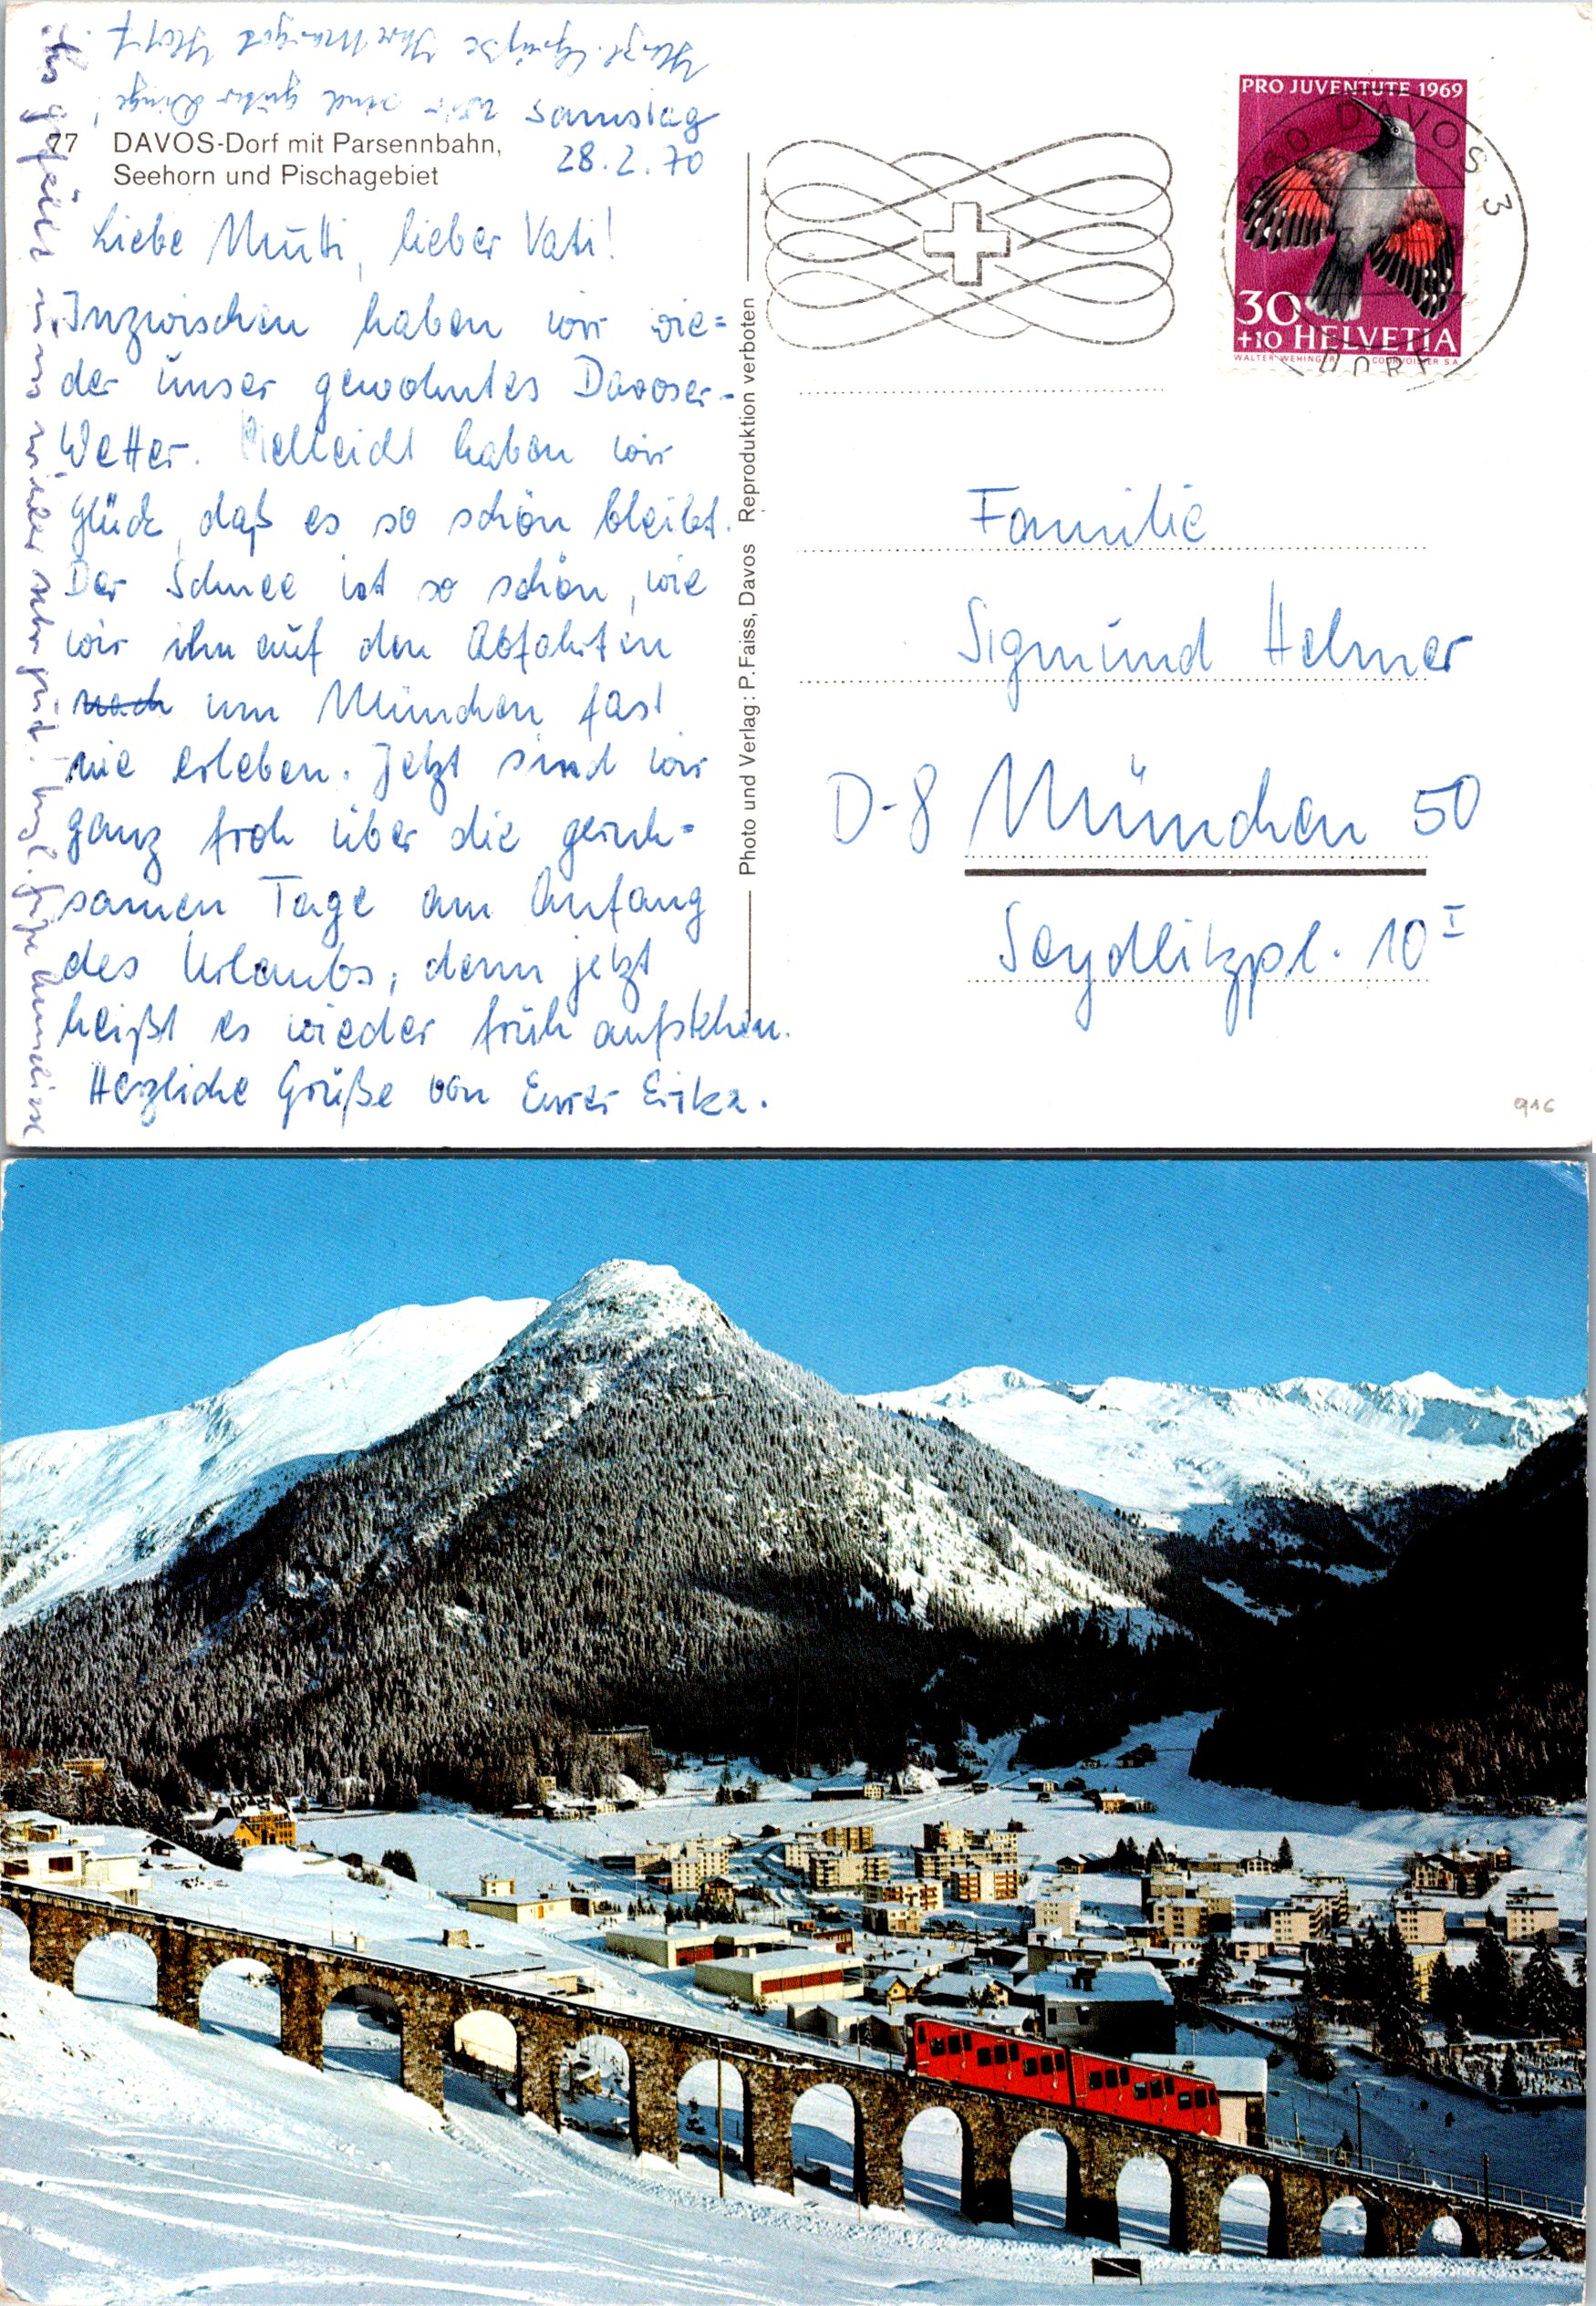 Herzl. Grüße Ihre Margot
wir sind guter Dinge!
Samstag
28.2.70
77 DAVOS-Dorf mit Parsennbahn,
Seehorn und Pischagebiet
Liebe Mutti, lieber Vati!
Inzwischen haben wir wie=
der unser gewohntes Davoser-
Wetter. Vielleicht haben wir
Glück, daß es so schön bleibt.
Der Schnee ist so schön, wie
wir ihn auf den Abfahrten
um München fast
nie erleben. Jetzt sind wir
ganz froh über die geruh=
samen Tage am Anfang
des Urlaubs, denn jetzt
heißt es wieder früh aufstehen.
Herzliche Grüße von Eurer Erika.
gefällt uns wieder sehr gut! Herzl. Grüße Anneliese
Photo und Verlag: P. Faiss, Davos Reproduktion verboten
PRO JUVENTUTE 1969
30
+10 HELVETIA
WALTER WEHINGER COURVOISIER S A
DAVOS 3
DORF
Familie
Sigmund Helmer
D-8 München 50
Seydlitzpl. 10 I
916